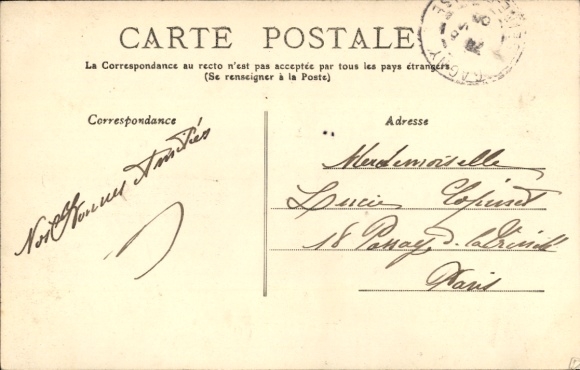 CARTE POSTALE
La Correspondance au recto n'est pas acceptée par tous les pays étrangers
(Se renseigner à la Poste)
Correspondance
Nos Bonnes Amitiés
Adresse
Mademoiselle
Lucie
18 d. la
Paris